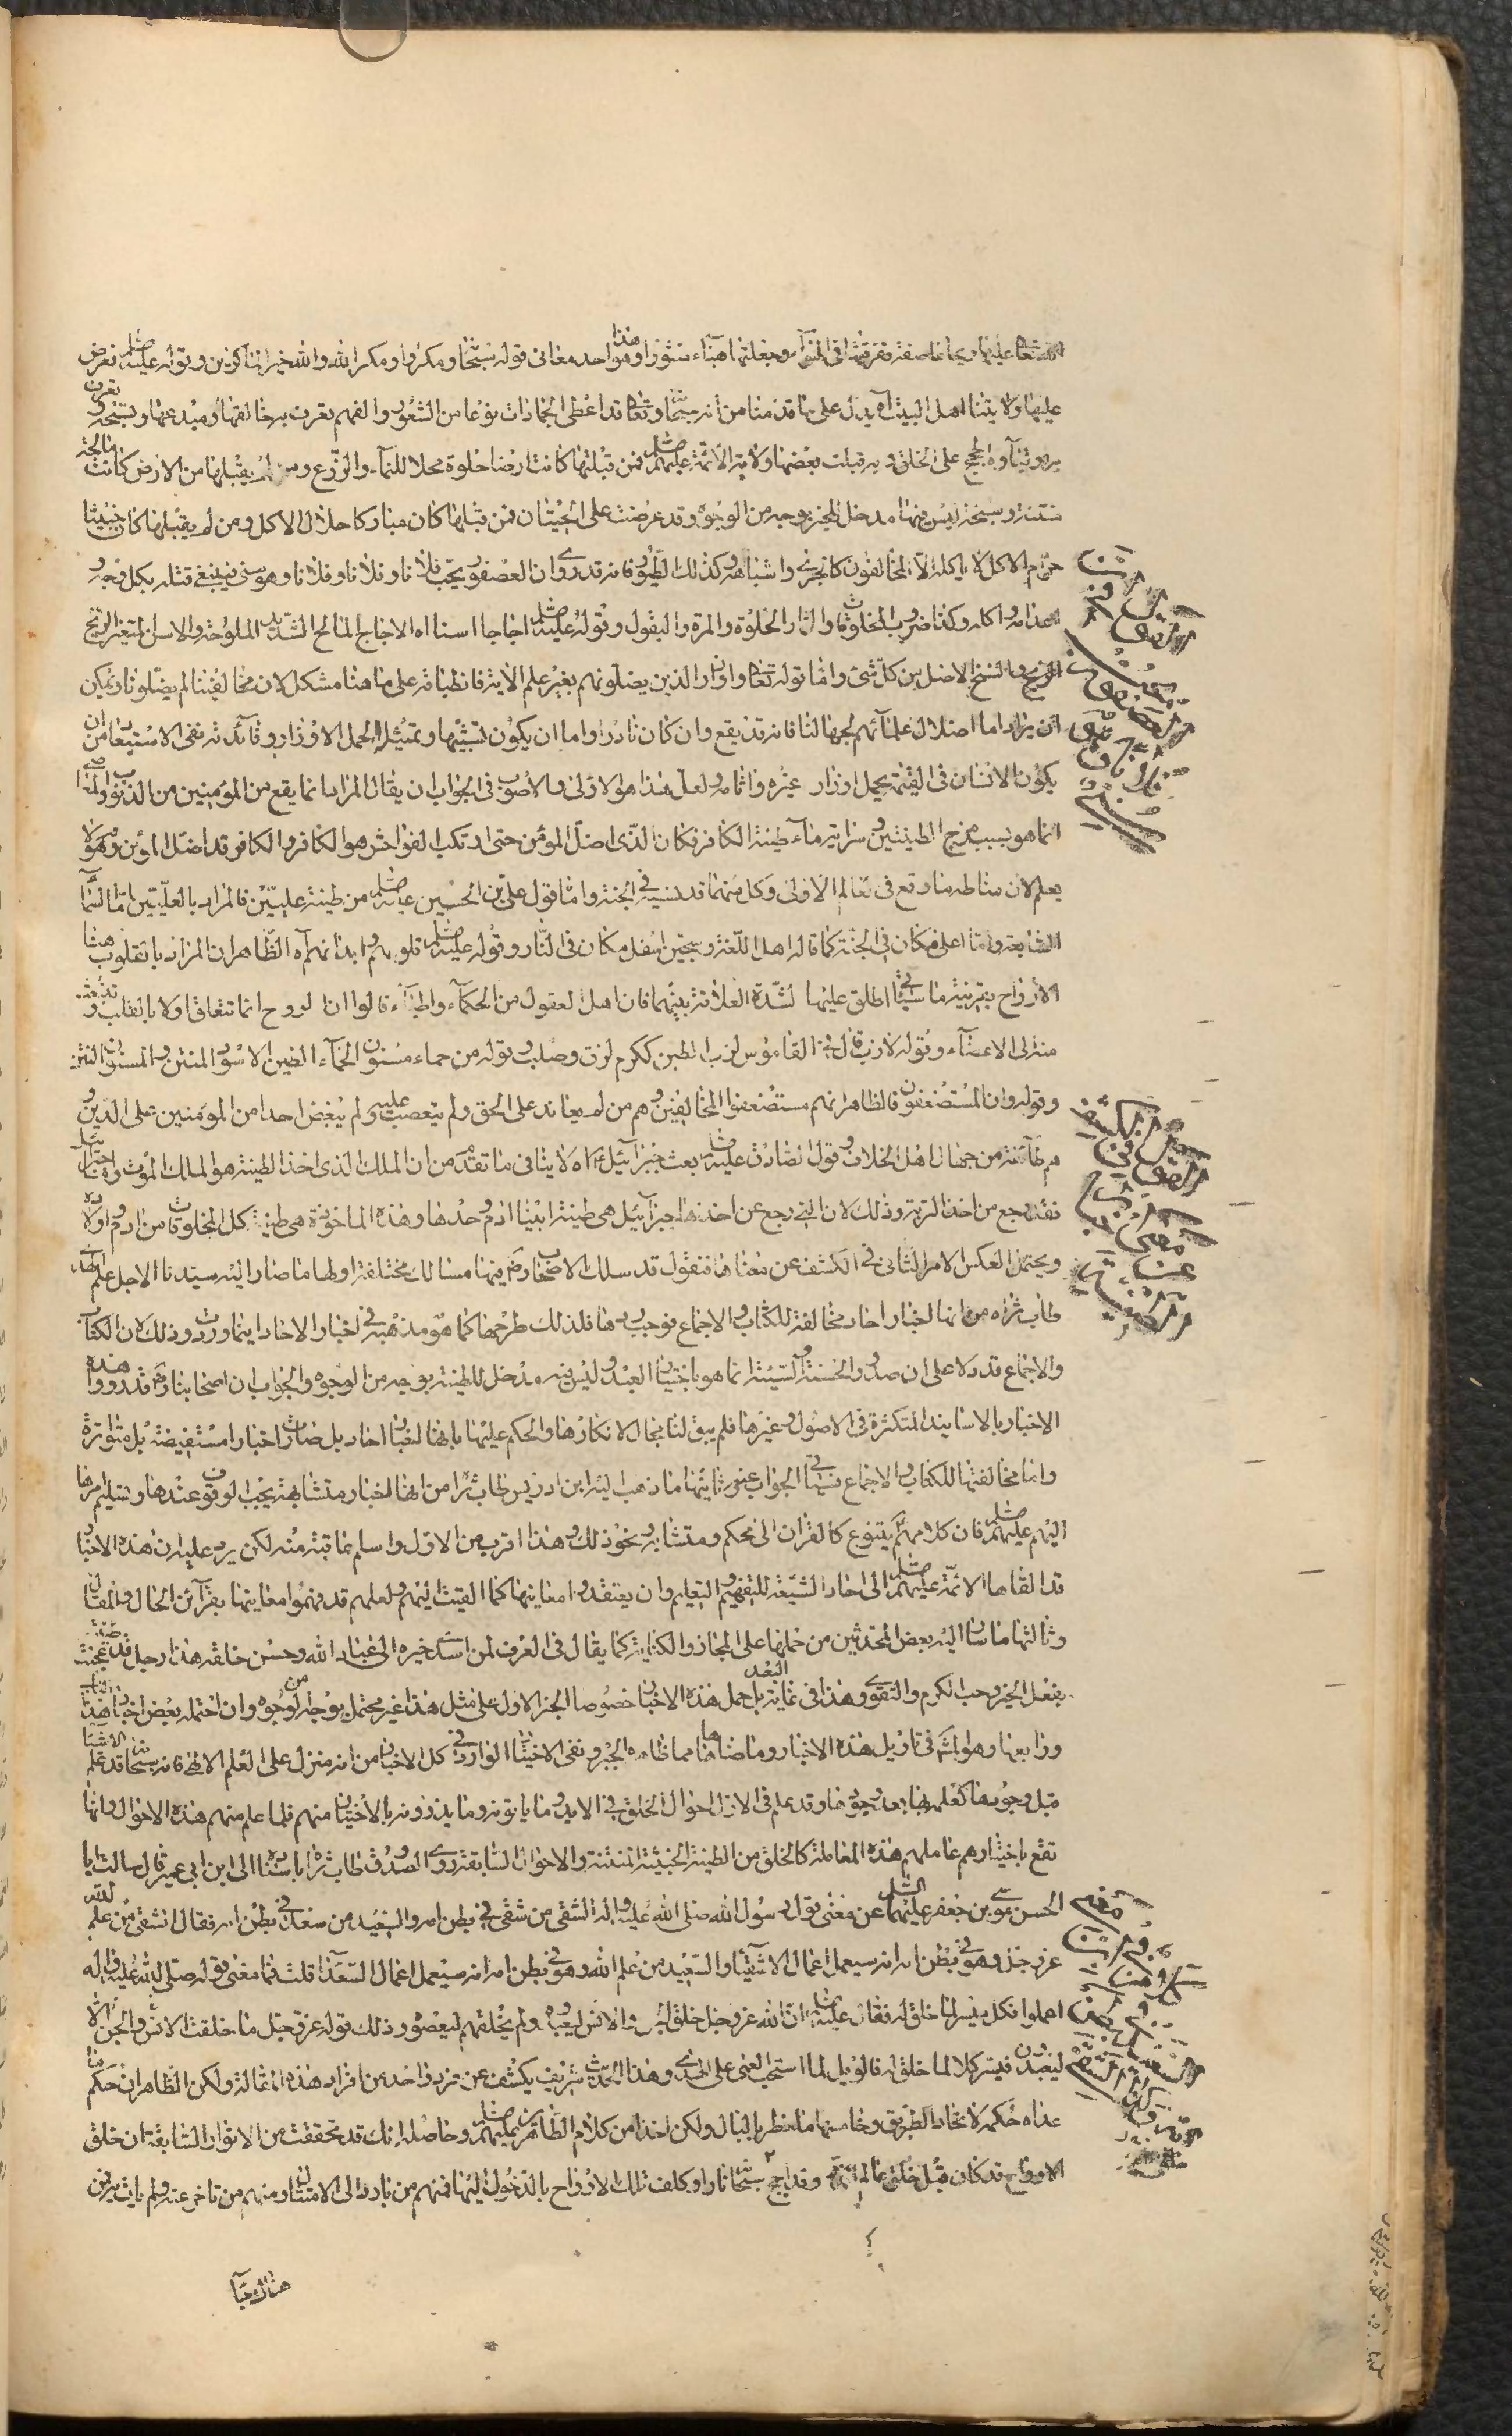 عليها ريحا عاصفة ففرقتها في الهواء وجعلتها هباء منثورا وهذا هو احد معاني قوله سبحانه ومكروا ومكر الله والله خير الماكرين وقوله عليه السلم تعرض
عليها ولايتنا اهل البيت اه يدل على ما قدمنا من انه سبحانه وتعالى قد اعطى الجمادات نوعا من الشعور والفهم تعرف به خالقها ومبدعها وتسبحه وتعرف
به نبينا والحجج على الخلق وبه قبلت بعضها ولاية الائمة عليهم السلم فمن قبلتها كانت ارضا حلوة محلا للنماء والزرع ومن لم يقبلها من الارض كانت مالحة
منتنة وسبخة ليس فيها مدخل للخير بوجه من الوجوه وقد عرضت على الحيتان فمن قبلها كان مباركا حلال الاكل ومن لم يقبلها كان خبيثا
حرام الاكل لا ياكله الا المخالفون كالجري واشباهه وكذلك الطيور فانه قد روى ان العصفور يحب فلانا وفلانا وفلانا وهو سني فينبغي قتله بكل وجه و
اعدامه واكله وكذا ضروب المخلوقات والثمار الحلوة والمرة والبقول وقوله عليه السلم اجاجا اسنا اه الاجاج المالح الشديد الملوحة والاسن المتغير الريح
والسنخ الاصل من كل شئ واما قوله تعالى واوزار الذين يضلونهم بغير علم الاية فانطباقه على ما هنا مشكل لان مخالفينا لم يضلونا ويمكن
ان يراد اما اضلال علمائهم لجهالنا فانه قد يقع وان كان نادرا واما ان يكون تشبيها وتمثيلا لحمل الاوزار وفائدته نفي الاستبعاد من ان
يكون الانسان في القيمة يحمل اوزار غيره واثامه ولعل هذا هو الاولى والاصوب في الجواب ان يقال المراد انما يقع من المؤمنين من الذنوب والمعاصي
انما هو بسبب مزج الطينتين وسراية ماء طينة الكافر فكان الذي اضل المؤمن حتى ارتكب الفواحش هو الكافر والكافر قد اضل المؤمن وهو لا
يعلم لان مناطه ما وقع في عالم الاولى وكل منهما قد نسيه في الجنة واما قول علي بن الحسين عليه السلم من طينة عليين فالمراد بالعليين اما السماء
السابعة واما اعلى مكان في الجنة كما قاله اهل اللغة وسجين اسفل مكان في النار وقوله عليه السلم قلوبهم وابدانهم اه الظاهر ان المراد بالقلوب هنا
الارواح بقرينة ما سياتي اطلق عليها لشدة العلاقة بينهما فان اهل العقول من الحكماء واطباء قالوا ان الروح انما تتعلق اولا بالقلب و
منه الى الاعضاء وقوله لازب قال في القاموس لزب الطين ككرم لزق وصلب وقوله من حماء مسنون الحماء الطين الاسود المنتن والمسنون المنتن
وقوله وان المستضعفون فالظاهر انهم مستضعفوا المخالفين وهم من لم يعاند على الحق ولم يتعصب عليه ولم يبغض احدا من المؤمنين على الدين و
هم طائفة من جهال اهل الخلاف وقول الصادق عليه السلم بعث جبرائيل ع اه لا ينافي ما تقدم من ان الملك الذي اخذ الطينة هو الملك الموت وان جبرائيل
فقد رجع من اخذ التربة وذلك لان التي رجع عن اخذها جبرائيل هي طينة ابينا ادم وحدها وهذه الماخوذة هي طينة كل المخلوقات من ادم واولاده
ويحتمل العكس الامر الثاني في الكشف عن معناها فنقول قد سلك الاصحاب رض فيها مسالك مختلفة اولها ما صار اليه سيدنا الاجل علم الهدى
طاب ثراه من انها اخبار احاد مخالفة للكتاب والاجماع فوجب ردها فلذلك طرحها كما هو مذهبه في اخبار الاحاد اينما وردت وذلك ان الكتاب
والاجماع قد دلا على ان صدور الحسنة والسيئة انما هو باختيار العبد وليس فيه مدخل للطينة بوجه من الوجوه والجواب ان اصحابنا رض قد رووا هذه
الاخبار بالاسانيد المتكثرة في الاصول وغيرها فلم يبق لنا مجال لانكارها والحكم عليها بانها اخبار احاد بل صارت اخبارا مستفيضة بل متواترة
واما مخالفتها للكتاب والاجماع فسياتي الجواب عنه وثانيها ما ذهب اليه ابن ادريس طاب ثراه من انها اخبار متشابهة يجب الوقوف عندها وتسليم امرها
اليهم عليهم السلم فان كلامهم يتنوع كالقران الى محكم ومتشابه ونحو ذلك وهذا اقرب من الاول واسلم عاقبة منه لكن يرد عليه ان هذه الاخبار
قد القاها الائمة عليهم السلم الى احاد الشيعة للتفهيم والتعليم وان يعتقدوا معانيها كما القيت اليهم ولعلهم قد فهموا معانيها بقرائن الحال والمقال
وثالثها ما صار اليه بعض المحدثين من حملها على المجاز والكناية كما يقال في العرف لمن اسدى خيره الى عباد الله وحسن خلقه هذا رجل قد عجنت طينته
بفعل الخير وحب الكرم والتقوى وهذا في غاية البعد بل حمل هذه الاخبار خصوصا الخبر الاول على مثل هذا غير محتمل بوجه من الوجوه وان احتمله بعض اخبار هذا الباب
ورابعها وهو المشهور في تاويل هذه الاخبار وما ضاهاها مما ظاهره الجبر ونفي الاختيار الوارد في كل الاخبار من انه منزل على العلم الالهي فانه سبحانه قد علم الاشياء
قبل وجودها كعلمه بها بعد وجودها وقد علم في الازل احوال الخلق في الابد وما ياتونه وما يذرونه بالاختيار منهم فلما علم منهم هذه الاحوال وانها
تقع باختيارهم عاملهم هذه المعاملة كالخلق من الطينة الخبيثة المنتنة والاحوال السابقة روى الصدوق طاب ثراه باسناده الى ابن ابي عمير قال سالت ابا
الحسن موسى بن جعفر عليهما السلم عن معنى قول رسول الله صلى الله عليه واله الشقي من شقي في بطن امه والسعيد من سعد في بطن امه فقال الشقي من علم الله
عز وجل وهو في بطن امه انه سيعمل اعمال الاشقياء والسعيد من علم الله وهو في بطن امه انه سيعمل اعمال السعداء قلت فما معنى قوله صلى الله عليه واله
اعملوا فكل ميسر لما خلق له فقال عليه السلم ان الله عز وجل خلق الجن والانس ليعبدوه ولم يخلقهم ليعصوه وذلك قوله عز وجل ما خلقت الانس والجن الا
ليعبدون فيسر كلا لما خلق له فالويل لما استحب العمى على الهدى وهذا الحديث شريف يكشف عن فرد واحد من افراد هذه المقالة ولكن الظاهر ان حكم ما
عداه حكمه لاتحاد الطريق وخامسها ما خطر بالبال ولكن اخذا من كلام الطاهرين عليهم السلم وحاصله انك قد تحققت من الانوار السابقة ان خلق
الارواح قد كان قبل خلق عالم الذر وقد اجج سبحانه نارا وكلف تلك الارواح بالدخول اليها فمنهم من بادر الى الامتثال ومنهم من تاخر عنه ولم يات به فمن
هناك جاء